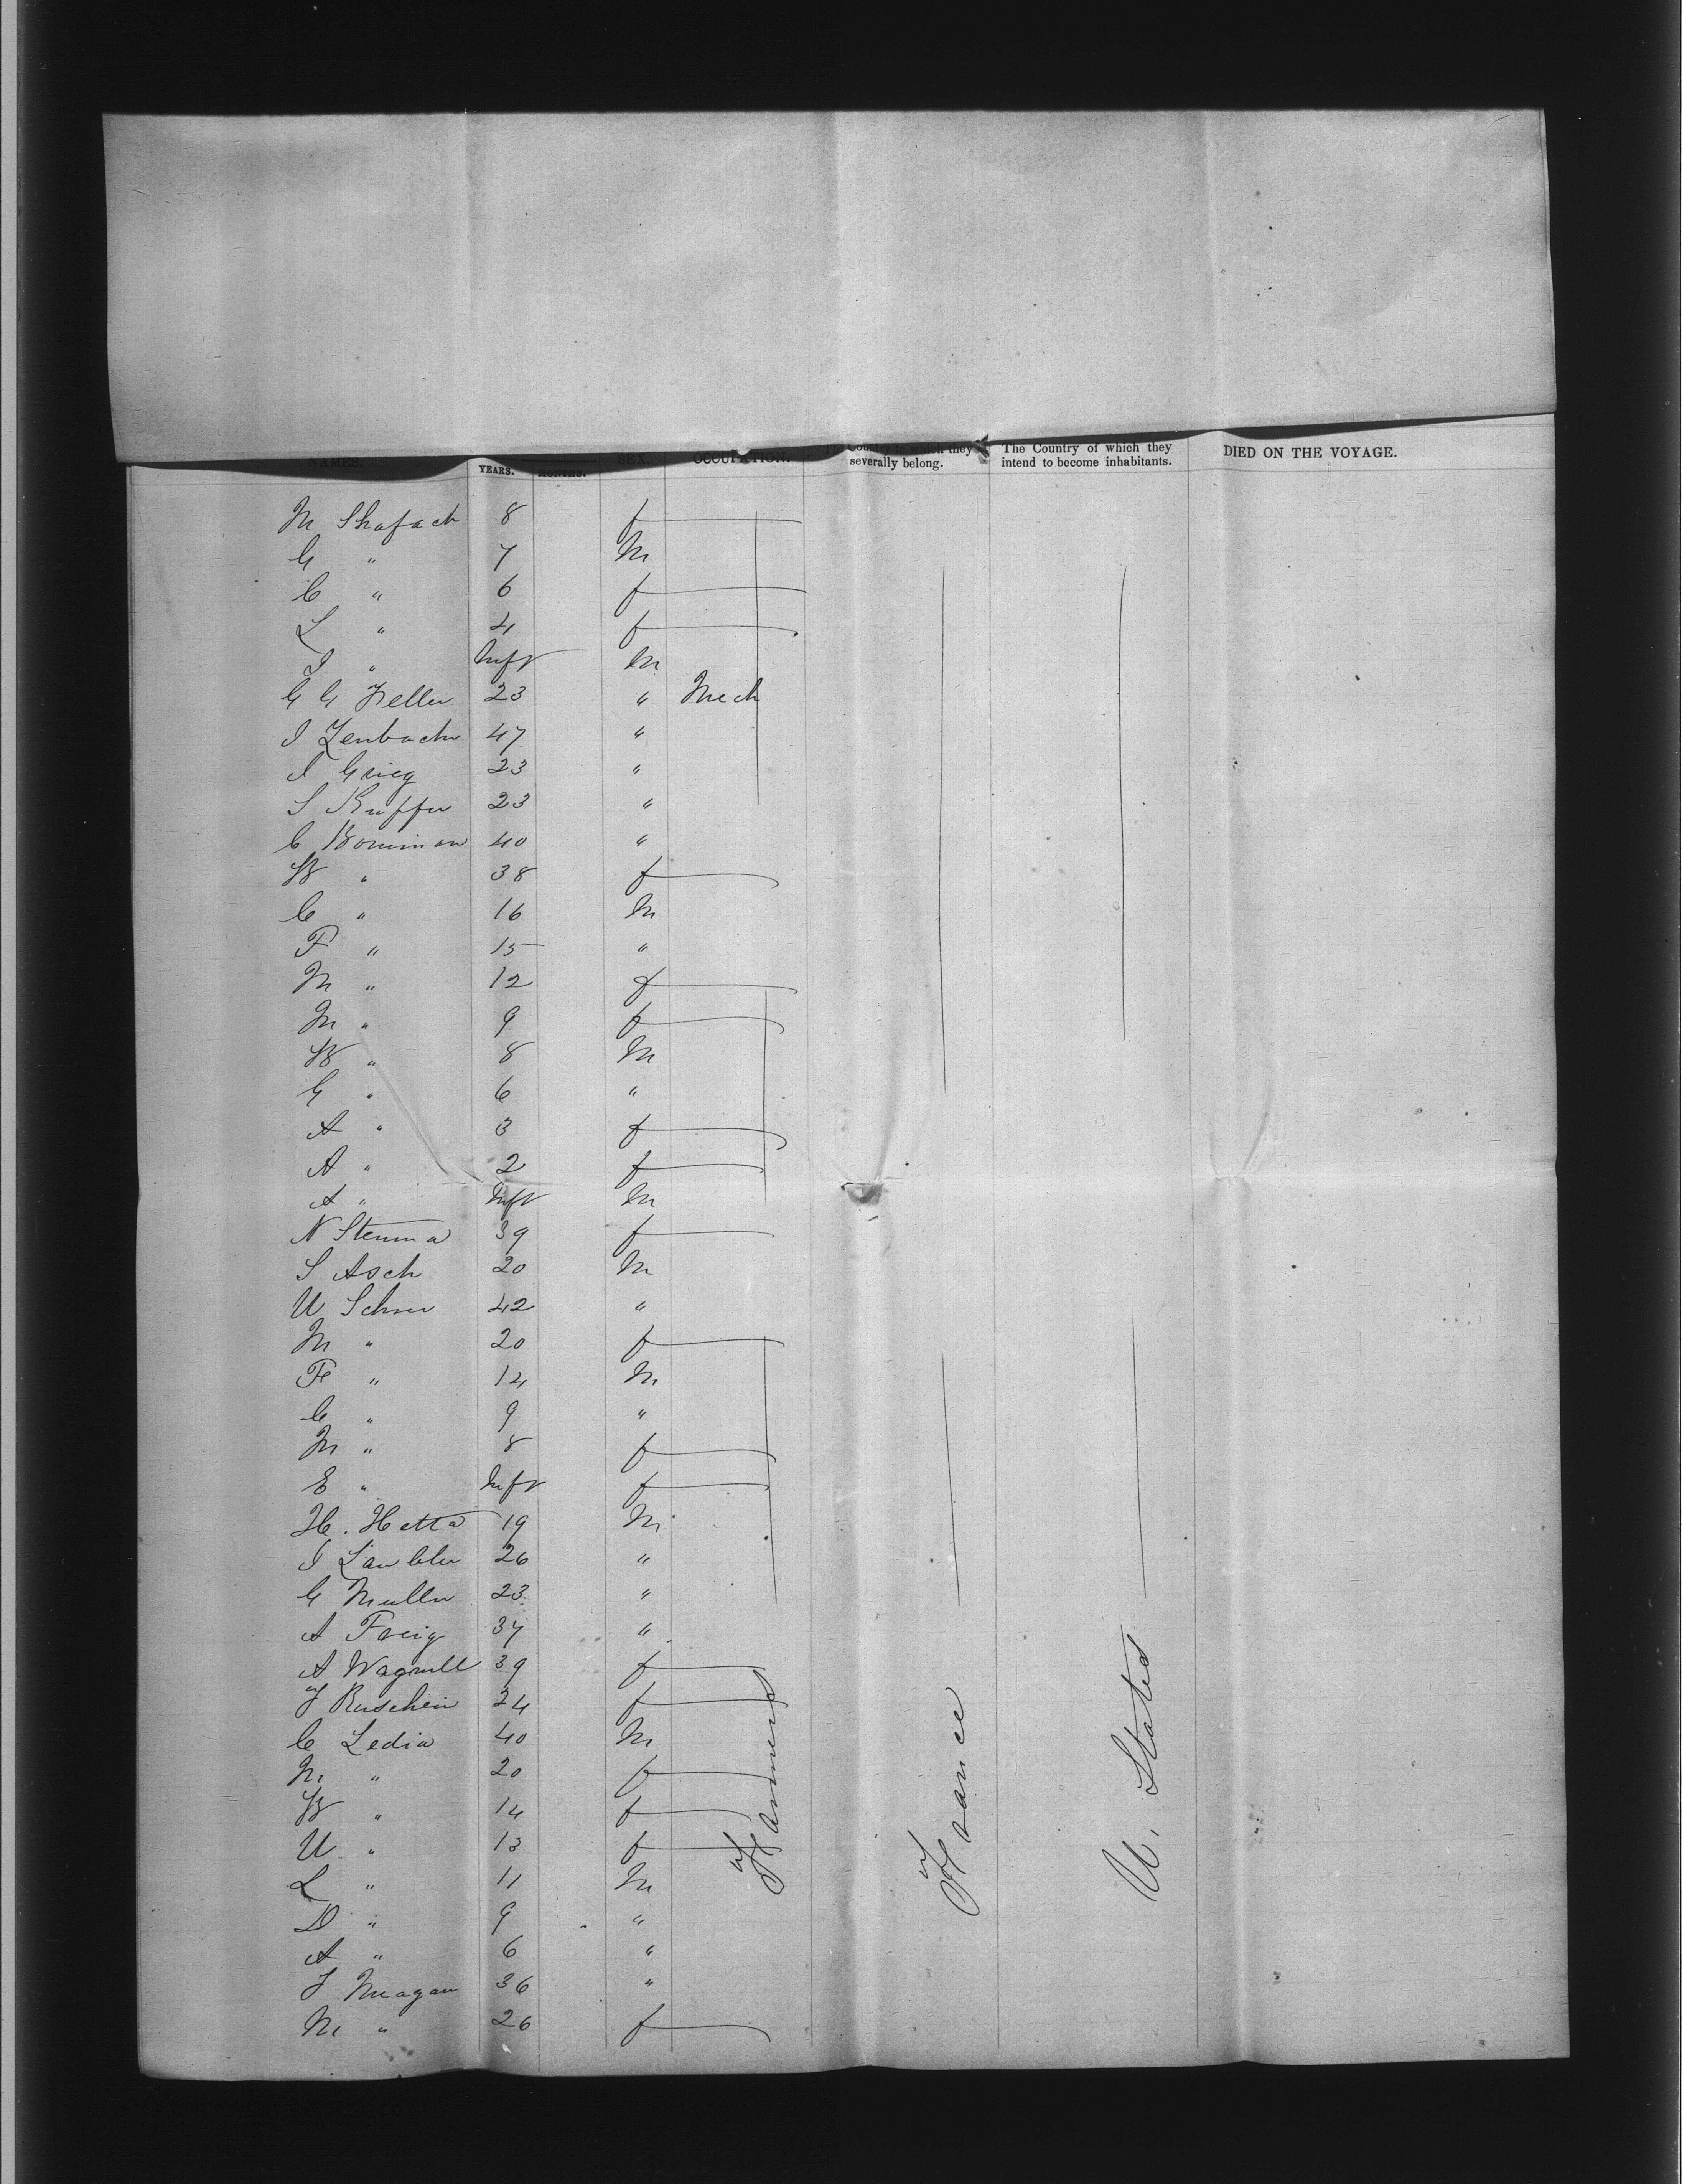 NAMES. YEARS. MONTHS. SEX. OCCUPATION. Country to which they severally belong. The Country of which they intend to become inhabitants. DIED ON THE VOYAGE.
M Shafach 8 f
G " 7 M
C " 6 f
L " 4 f
J " Inft M
G G Feller 23 " Mech
J Zenbach 47 "
J Grieg 23 "
S Kuffer 23 "
C Bominon 40 "
W " 38 f
C " 16 M
F " 15 "
M " 12 f
M " 9 f
W " 8 M
G " 6 "
A " 3 f
A " 2 f
A " Inft M
N Stemma 39 f
S Asch 20 M
U Schner 42 "
M " 20 f
Fe " 14 M
C " 9 "
M " 8 f
E " Inft f
He. Hetta 19 M
J Laubler 26 "
G Muller 23 "
A Freig 37 "
A Wagnull 39 f
J Ruschein 24 f
C Ledia 40 M
M " 20 f
W " 14 f
U " 13 f
L " 11 M
D " 9 "
A " 6 "
J Meagan 36 "
M " 26 f
Farmers
France
U. States